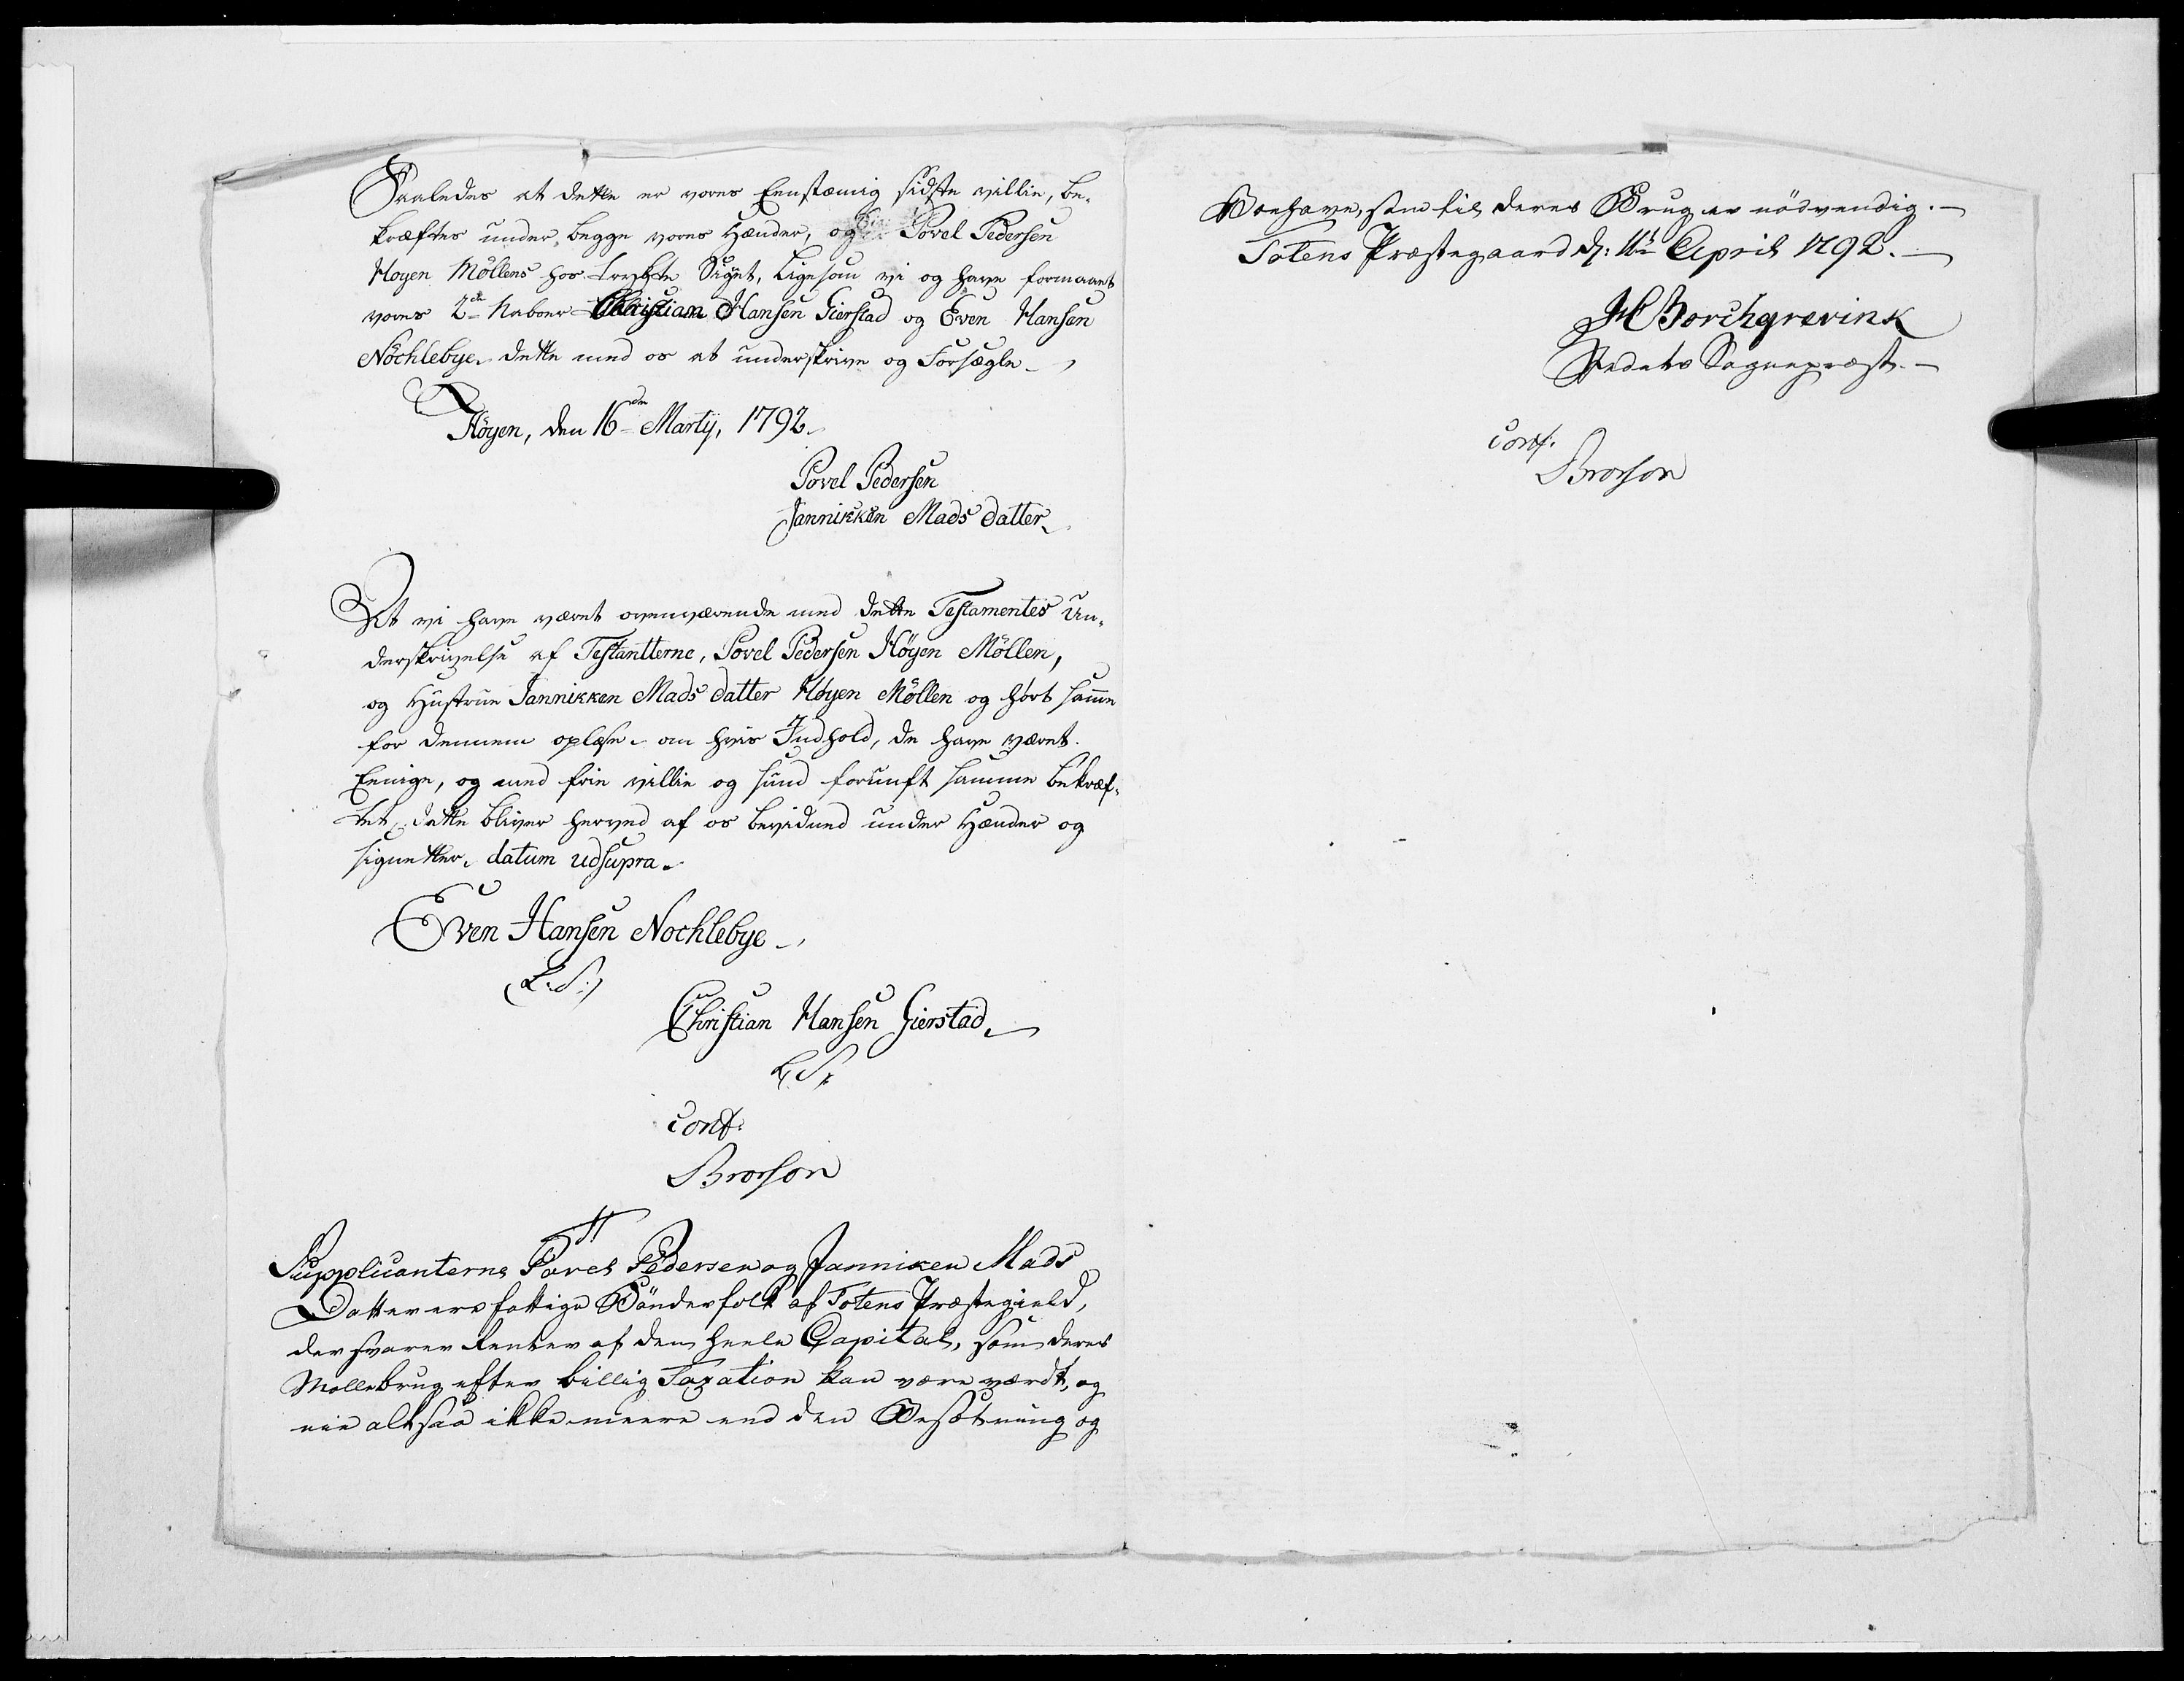 Saaledes at dette er vores Eenstæmig sidste villie, be-
kræftes under begge vores Hænder, og Povel Pedersen
Høyen Möllens hos trykte Signet, Ligesom vi og have formaaet
vores 2de Naboer Christian Hansen Gierstad og Even Hansen
Nöchlebye dette med os at underskrive og Forsegle
Höyen, den 16de Martij, 1792
Povel Pedersen
Jannikken Mads datter
At vi have været overværende med dette Testamentes Un-
derskrivelse af Testantterne, Povel Pedersen Höyen Möllen,
og Hustrue Jannikken Mads datter Høyen Möllen og hørt samme
for dennem oplæse om hvis Indhold, de have været
Eenige, og med frie villie og sund fornuft samme bekræf-
tet, dette bliver herved af os bevidned under Hænder og
signetter, datum udsupra.
Even Hansen Nochlebye
(L.S:)
Christian Hansen Gierstad
L.S.
conf:
Brorson
Supplicanterne Povel Pedersen og Janniken Mads
Datter ere fattige Bönderfolk af Totens Præstegield,
der svarer Renter af den heele Capital, som deres
Mollebrug efter billig Taxation kan være værdt, og
eie altsaa ikke meere end den Besætning og
Boehave, som til deres Brug er nödvendig.
Totens Præstegaard d: 11te April 1792.
H Borchgrevink
Stedets Sognepræst.
conf:
Brorson